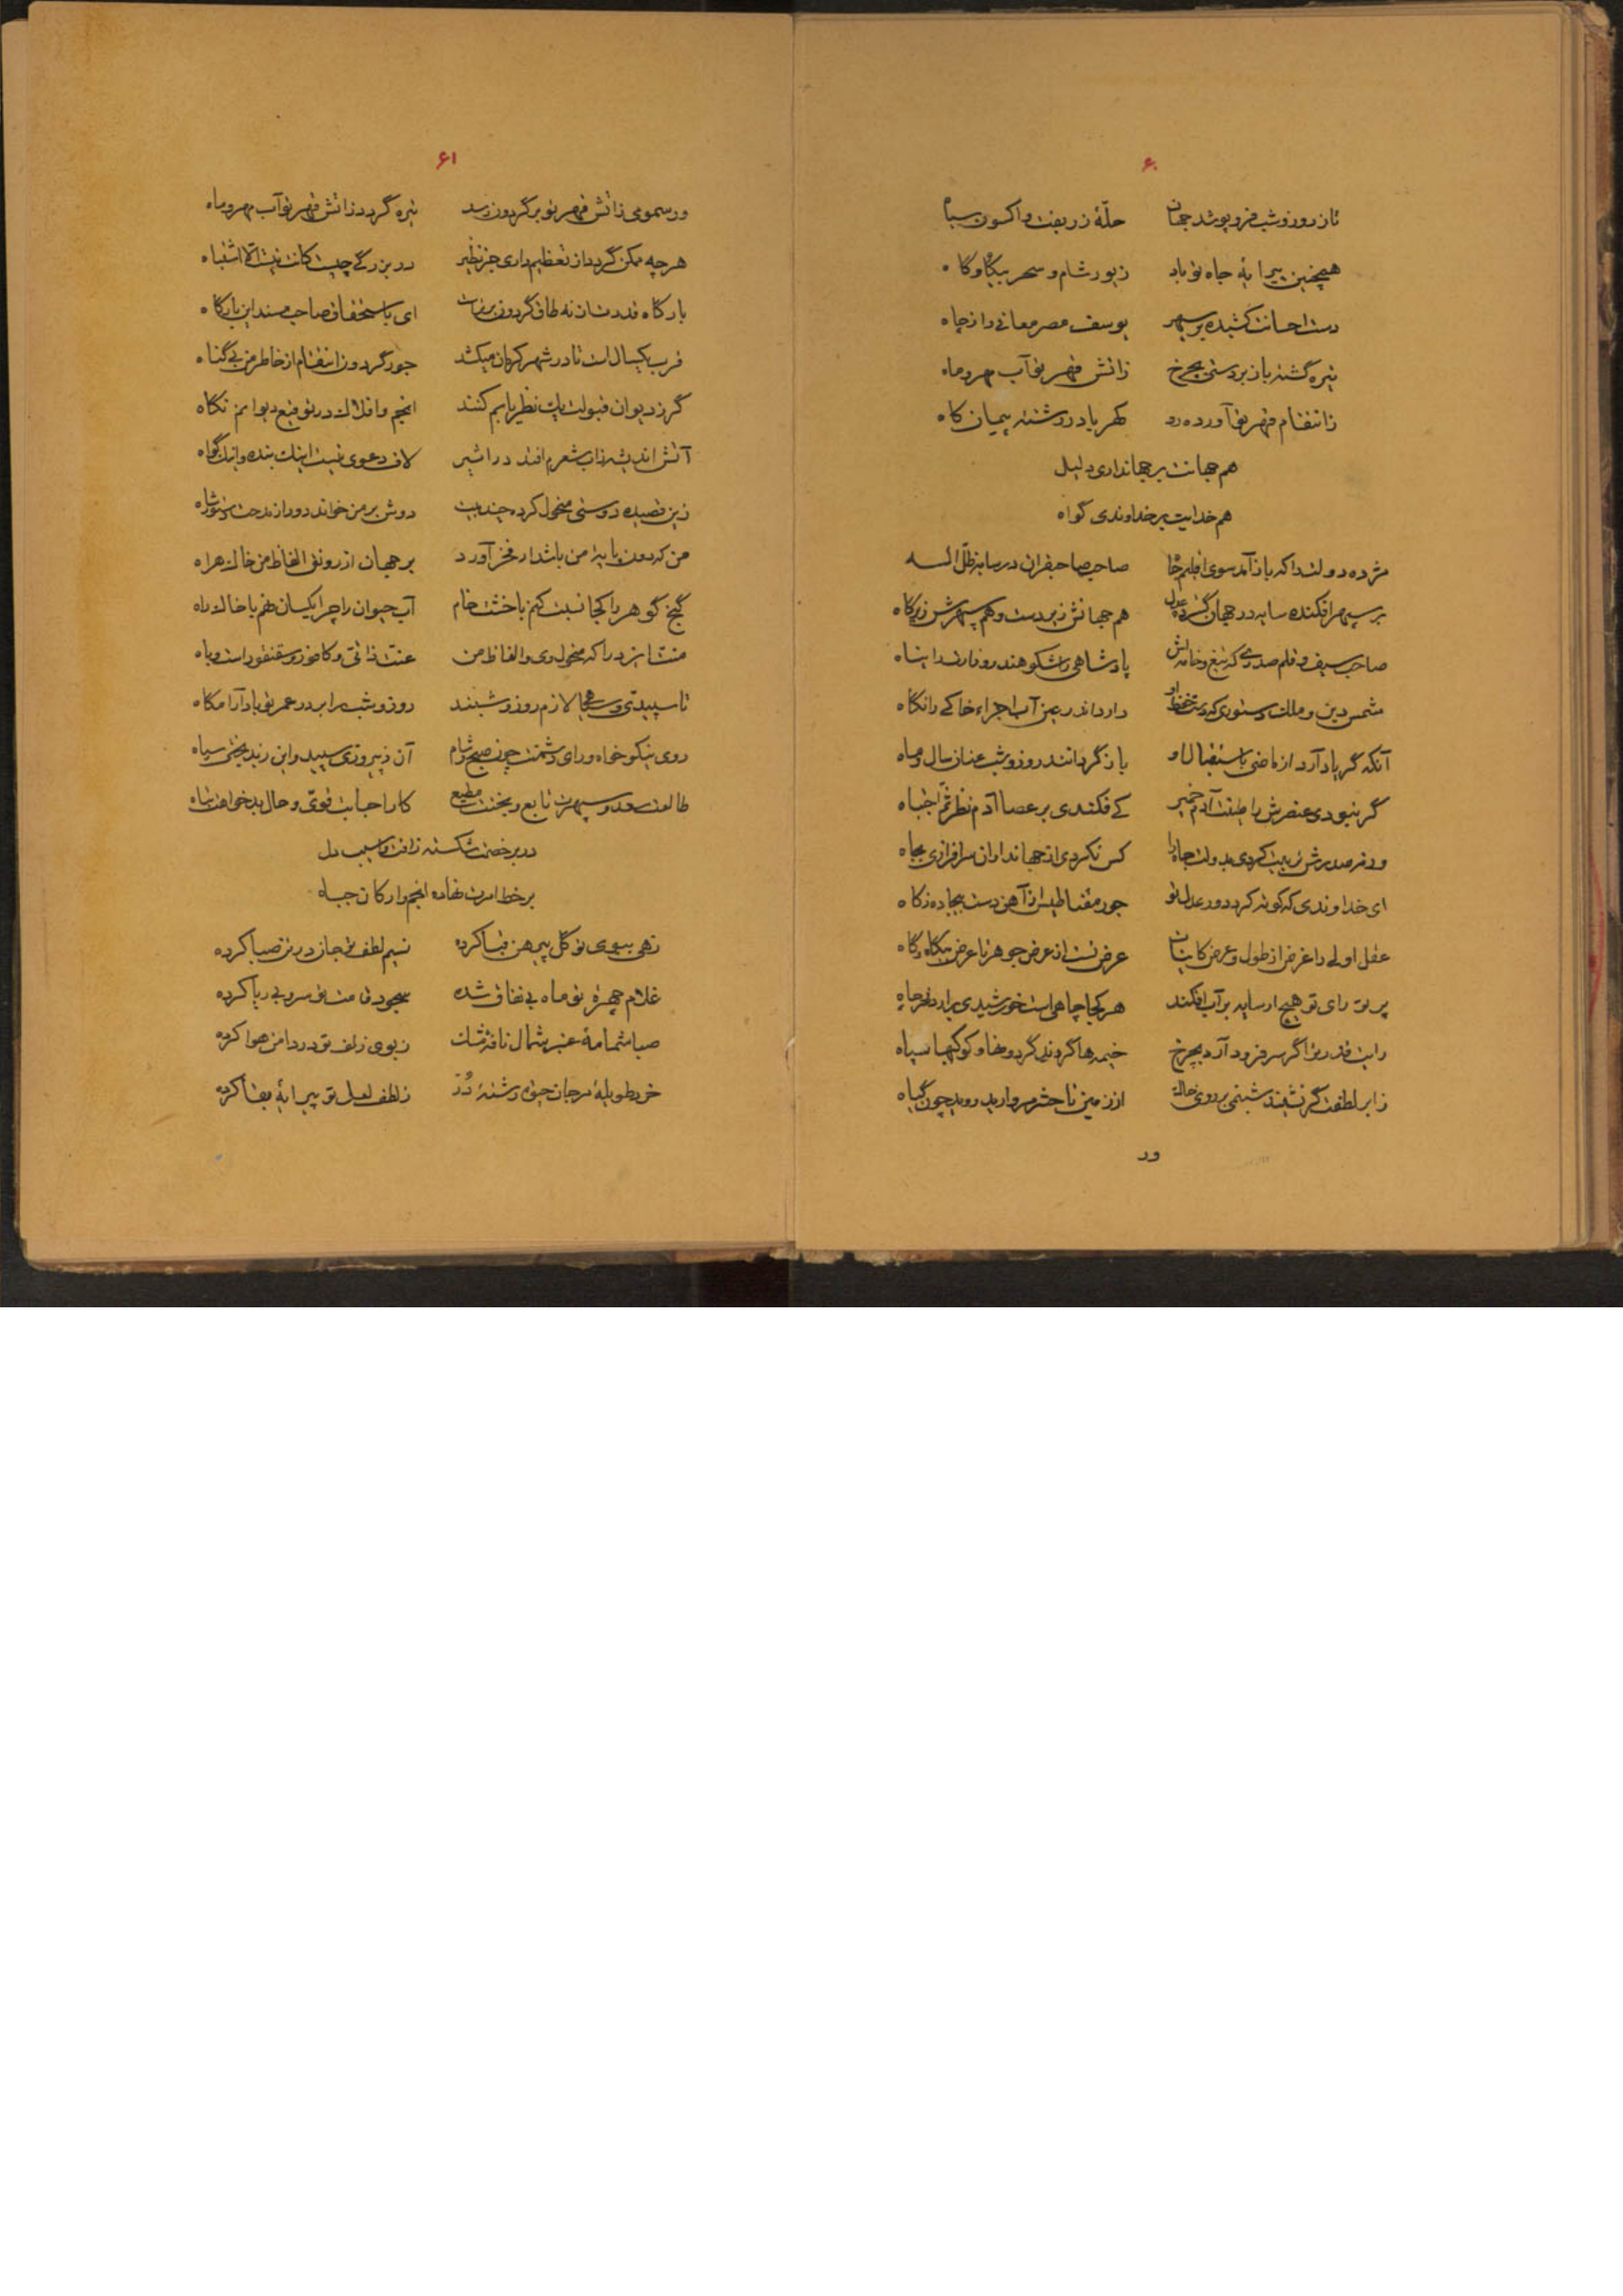 ۶۰
تا ز روز و شب فرو پوشد جهان حلّهٔ زربفت و اکسون سیاه
همچنین پیرایهٔ جاه تو باد زیور شام و سحر بیگاه و گاه
دست احسانت کشیده بر سپهر یوسف مصر معانی را ز چاه
تیره گشته باز بر چرخ ز آتش قهر تو آب مهر و ماه
ز انتقام قهر تو آورده رو کهربا در رشته پیمان کاه
هم جهانت بر جهانداری دلیل
هم خدایت بر خداوندی گواه
مژده دولت را که باز آمد سوی اقلیم جاه صاحب صاحبقران در سایهٔ ظلّ اله
بر سپهر افکنده سایه در جهان گسترده عدل هم جهانش زیردست و هم سپهرش زیرگاه
صاحب سیف و قلم صدری که تیغ و خامه‌اش پادشاهی را شکوهند روزگار را پناه
شمس دین و ملت دستوری که حفظ او دارد اندر عین آب اجزاء خاکی را نگاه
آنکه گر یاد آرد از ماضی باستقبال او باز گردانند روز و شب عنان سال و ماه
گر نبودی عنصرش را طینت آدم خمیر کی فکندی بر عصا آدم نظر ثمّ اجتباه
ور نه صدرش تربیت کردی بدولت جاه را کس نکردی از جهانداران سرافرازی بجاه
ای خداوندی که کوته کرد دور عدل تو جور مقناطیس ز آهن دست بیجاده ز کاه
عقل اولی را غرض از طول و عرض کاینات عرض تست از عرض جوهر تا عرض بیگاه و گاه
پرتو رای تو هیچ ار سایه بر آب افکند هر کجا چاهی است خورشیدی برآرد قعر چاه
رایت قدر ترا گر سر فرود آرد بچرخ خیمه‌ها گردون گردد و کوکبها سپاه
ز ابر لطفت گر نشیند شبنمی بر روی خاک از زمین تا حشر مروارید روید چون گیاه
ور
۶۱
ور سمومی ز آتش قهر تو بر گردون رسد تیره گردد ز آتش قهر تو آب مهر و ماه
هر چه ممکن گردد از تعظیم داری جز نظیر در بزرگی چیست کانت نیست الّا اشتباه
بارگاه قدرتت از نه طاق گردون برترست ای باستحقاق صاحب مسند این بارگاه
قرب یکسال است تا در شهر کرمان میکشد جور گردون انتقام از خاطر من بی گناه
گر ز دیوان قبولت یک نظر یابم کنند انجم و افلاک در توقیع دیوانم نگاه
آتش اندیشه ز آب شعرم افتد در اثیر لاف دعوی نیست اینک بنده و اینک گواه
زین قصیده دوستی منحول کرده چند بیت دوش بر من خواند دور از مدحت دستور شاه
من که دون پایهٔ من باشد ار فخر آورد بر جهان از رونق الفاظ من خاک هراه
گنج گوهر را کجا نسبت کنم با خشت خام آب حیوان را چرا یکسان نهم با خاک راه
منت ایزد را که منحول وی و الفاظ من عنت ذاتی و کافور و سقنقور است و باه
تا سپیدی و سیاهی لازم روز و شبند روز و شب را بر در عمر تو باد آرامگاه
روی نیکو خواه و رای دشمنت چون صبح و شام آن ز پیروزی سپید و این ز بد بختی سیاه
طالعت سعد و سپهرت تابع و بختت مطیع کار احبابت قوی و حال بدخواهت تباه
در بر خصمت شکسته ز آفت و آسیب دل
بر خط امرت نهاده انجم و ارکان جباه
زهی ببوی تو گل پیرهن قبا کرده نسیم لطف تو جان در تن صبا کرده
غلام چهرهٔ تو ماه بی نفاق شده سجود قامت تو سرو بی ریا کرده
صبا شمامهٔ عنبر شمال نافه مشک ز بوی زلف تو در دامن هوا کرده
خرد طویلهٔ مرجان حقه رشتهٔ دُر ز لطف لعل تو پیرایهٔ بقا کرده